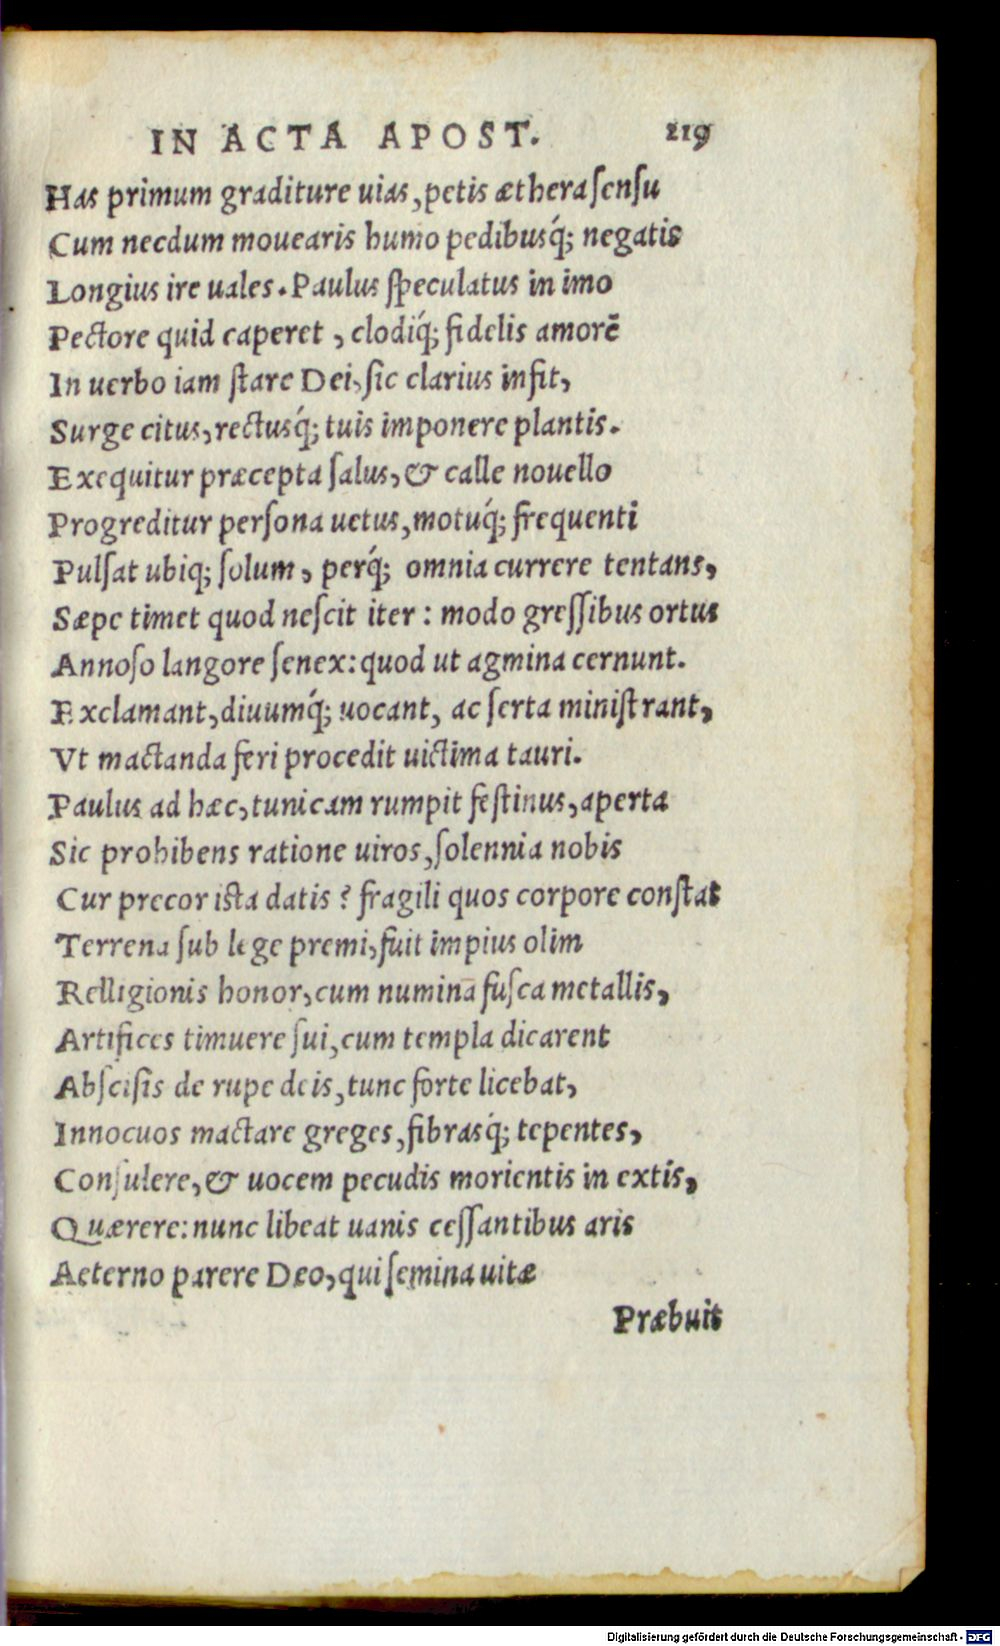 IN ACTA APOST. 219
Has primum graditure uias, petis æthera ſenſu
Cum necdum mouearis humo pedibusq́; negatis
Longius ire uales. Paulus ſpeculatus in imo
Pectore quid caperet, clodiq́; fidelis amorē
In uerbo iam ſtare Dei, ſic clarius infit,
Surge citus, rectusq́; tuis imponere plantis.
Exequitur præcepta ſalus, & calle nouello
Progreditur perſona uetus, motuq́; frequenti
Pulſat ubiq; ſolum, perq́; omnia currere tentans,
Sæpe timet quod neſcit iter: modo greſſibus ortus
Annoſo langore ſenex: quod ut agmina cernunt.
Exclamant, diuumq́; uocant, ac ſerta miniſtrant,
Vt mactanda feri procedit uictima tauri.
Paulus ad hæc, tunicam rumpit feſtinus, aperta
Sic prohibens ratione uiros, ſolennia nobis
Cur precor iſta datis? fragili quos corpore conſtat
Terrena ſub lege premi, fuit impius olim
Relligionis honor, cum numina fuſca metallis,
Artifices timuere ſui, cum templa dicarent
Abſciſis de rupe deis, tunc forte licebat,
Innocuos mactare greges, fibrasq́; tepentes,
Conſulere, & uocem pecudis morientis in extis,
Quærere: nunc libeat uanis ceſſantibus aris
Aeterno parere Deo, qui ſemina uitæ
Præbuit
Digitalisierung gefördert durch die Deutsche Forschungsgemeinschaft - DFG